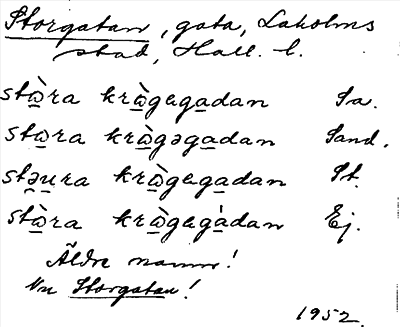 Storgatan, gata, Laholms
stad, Hall. l.
stὼ̲ra krὼ̲gega̲dan Sa.
stω̲ra krὼ̲gəga̲dan Sand.
stə̲u̲ra krὼ̲gega̲dan St.
stὼ̲ra krὼ̲gegà̲dan Ej.
Äldre namn!
Nu Storgatan!
1952.